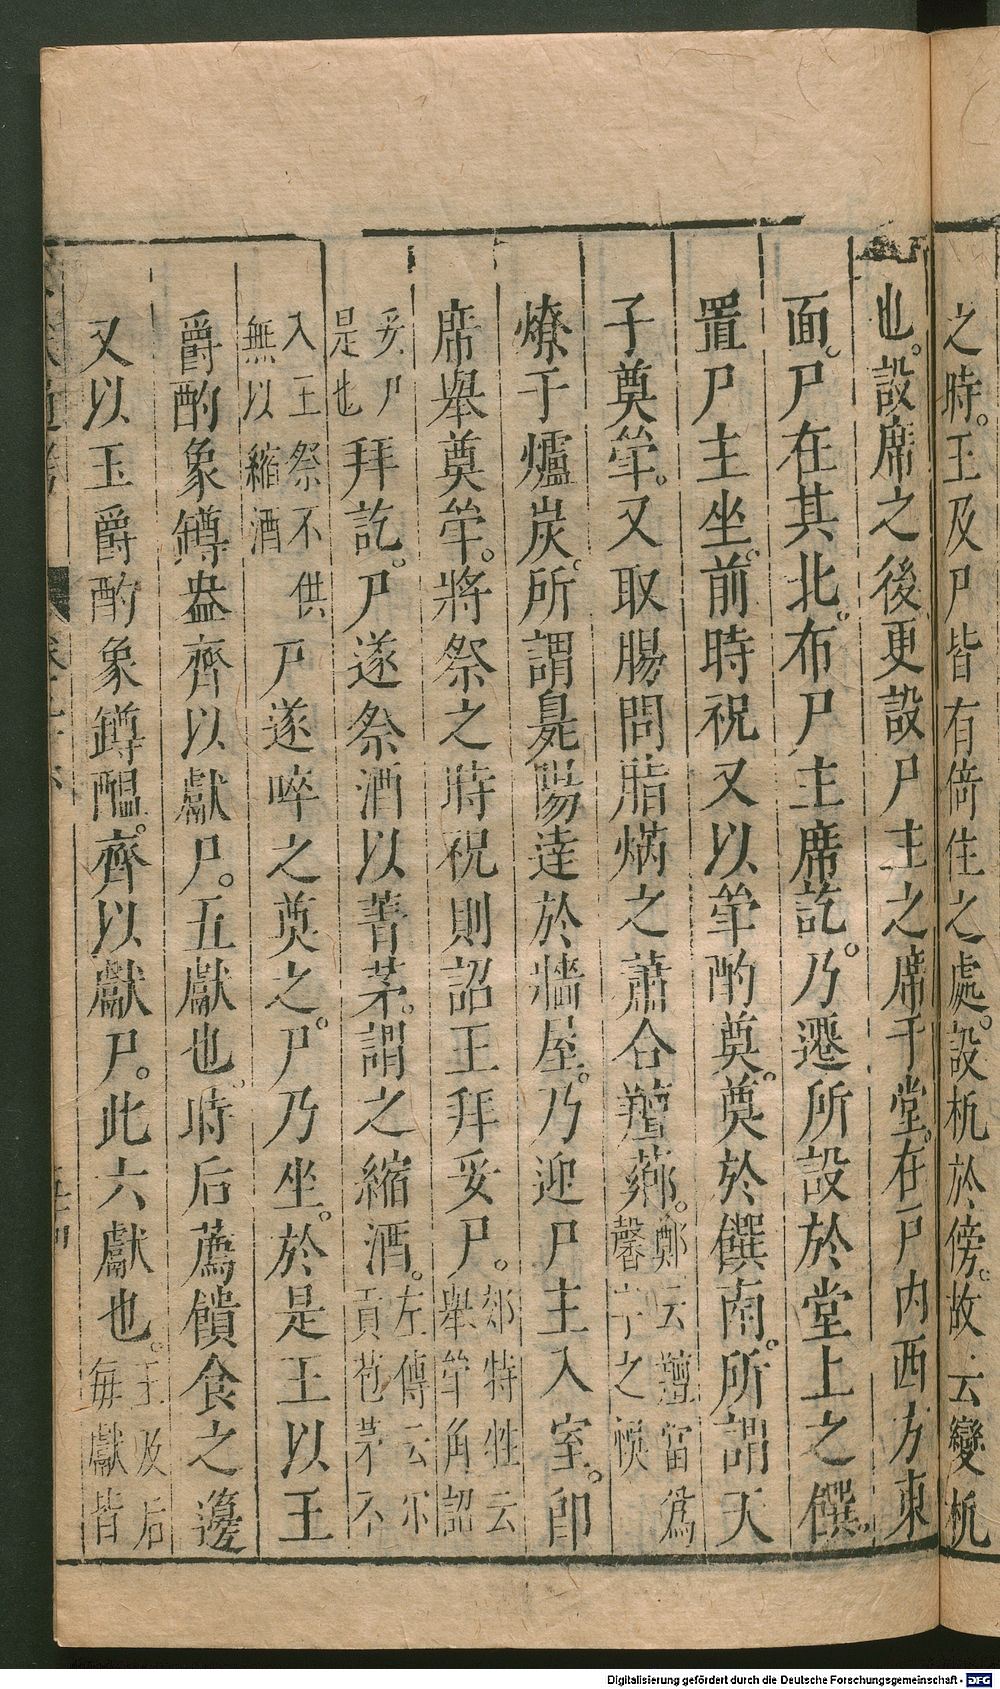 之時。王及尸皆有倚住之處。設机於傍。故云變机
也。設席之後更設尸主之席于堂。在戶內西方東
面。尸在其北。布尸主席訖。乃遷所設於堂上之饌。
置尸主坐前。時祝又以斝酌奠。奠於饌南。所謂天
子奠斝。又取腸間脂焫之蕭合羶薌。鄭云羶當爲
馨字之誤
燎于爐炭。所謂臭陽達於牆屋。乃迎尸主入室。卽
席舉奠斝。將祭之時祝則詔王拜妥尸。郊特牲云
舉斝角詔
妥尸
是也拜訖。尸遂祭酒以菁茅。謂之縮酒。左傳云尔
貢苞茅不
入王祭不供
無以縮酒尸遂啐之奠之。尸乃坐。於是王以玉
爵酌象罇盎齊以獻尸。五獻也。時后薦饋食之籩
又以玉爵酌象罇醞。齊以獻尸。此六獻也。王及后
每獻皆
Digitalisierung gefördert durch die Deutsche Forschungsgemeinschaft - DFG